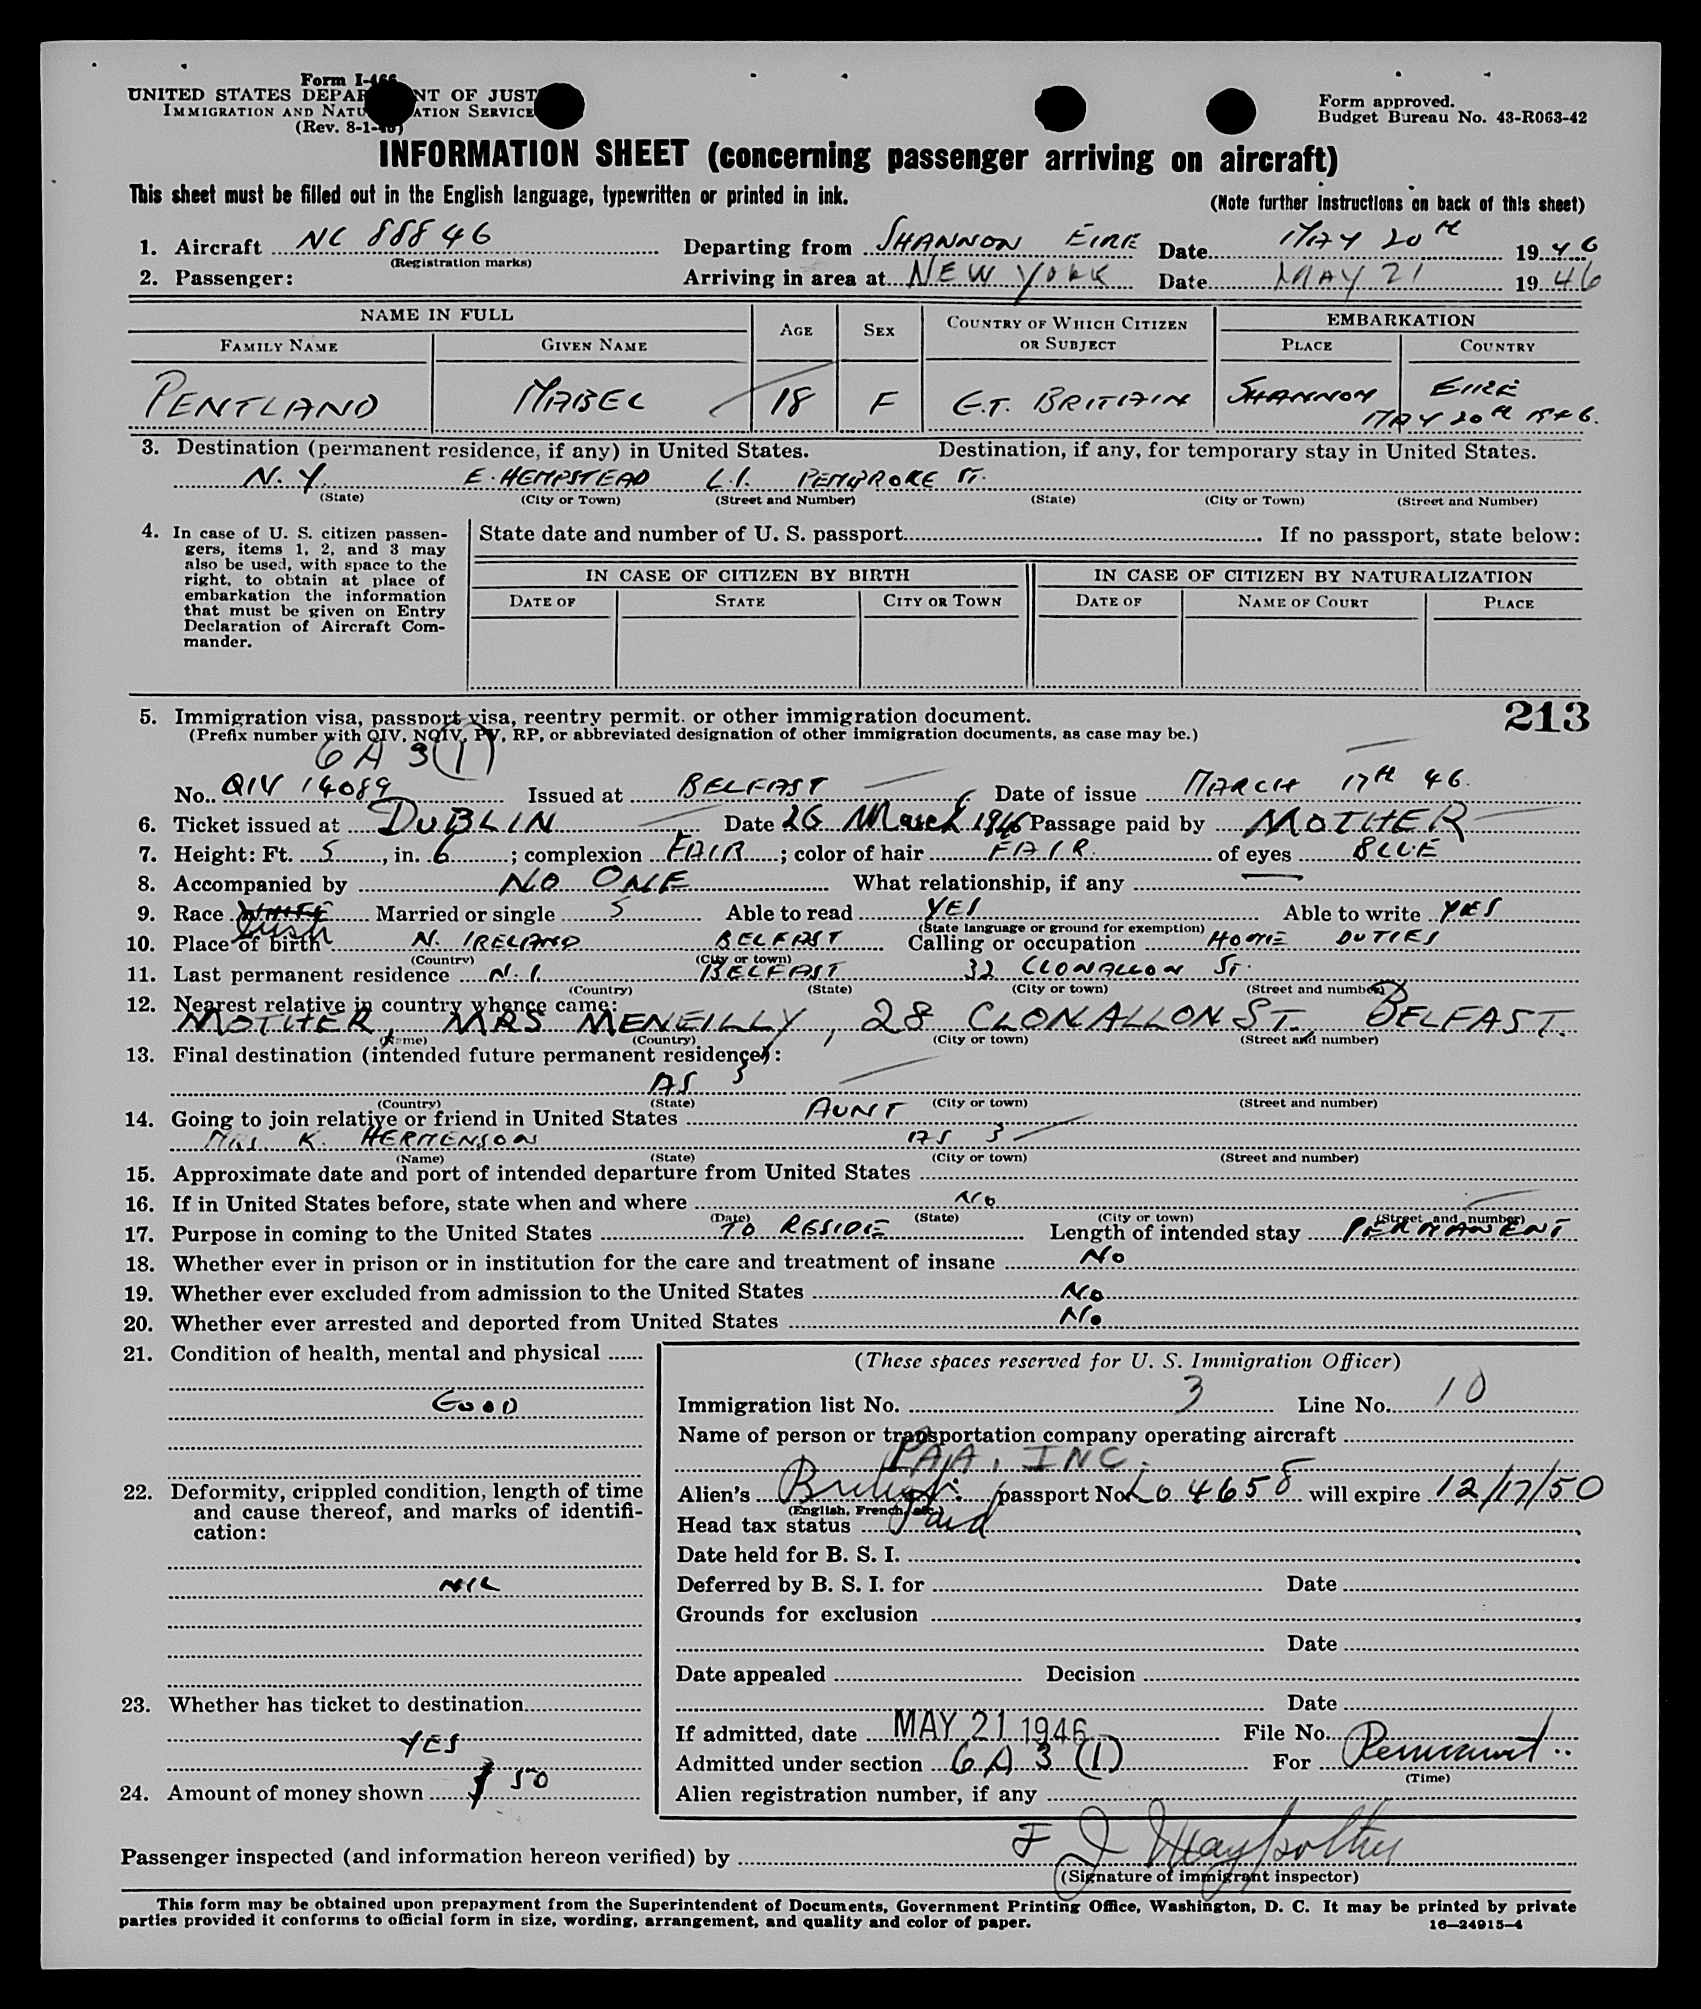 Form I-466
UNITED STATES DEPARTMENT OF JUSTICE
IMMIGRATION AND NATURALIZATION SERVICE
(Rev. 8-1-45)
Form approved.
Budget Bureau No. 43-R063-42
INFORMATION SHEET (concerning passenger arriving on aircraft)
This sheet must be filled out in the English language, typewritten or printed in ink.
(Note further instructions on back of this sheet)
1. Aircraft NC 88846 Departing from SHANNON EIRE Date MAY 20th 1946
(Registration marks)
2. Passenger: Arriving in area at NEW YORK Date MAY 21 1946
NAME IN FULL AGE SEX COUNTRY OF WHICH CITIZEN OR SUBJECT EMBARKATION
FAMILY NAME GIVEN NAME PLACE COUNTRY
PENTLAND MABEL 18 F GT. BRITAIN SHANNON EIRE
MAY 20th 1946.
3. Destination (permanent residence, if any) in United States. Destination, if any, for temporary stay in United States.
N.Y. E. HEMPSTEAD L.I. PEMBROKE ST.
(State) (City or Town) (Street and Number) (State) (City or Town) (Street and Number)
4. In case of U. S. citizen passen-
gers, items 1, 2, and 3 may
also be used, with space to the
right, to obtain at place of
embarkation the information
that must be given on Entry
Declaration of Aircraft Com-
mander.
State date and number of U. S. passport If no passport, state below:
IN CASE OF CITIZEN BY BIRTH IN CASE OF CITIZEN BY NATURALIZATION
DATE OF STATE CITY OR TOWN DATE OF NAME OF COURT PLACE
5. Immigration visa, passport visa, reentry permit, or other immigration document. 213
(Prefix number with QIV, NQIV, PV, RP, or abbreviated designation of other immigration documents, as case may be.)
6 A 3 (1)
No. QIV 14089 Issued at BELFAST Date of issue MARCH 17th 46.
6. Ticket issued at DUBLIN Date 26 March 1946 Passage paid by MOTHER
7. Height: Ft. 5, in. 6; complexion FAIR; color of hair FAIR. of eyes BLUE
8. Accompanied by NO ONE What relationship, if any —
9. Race WHITE Irish Married or single S Able to read YES Able to write YES
(State language or ground for exemption)
10. Place of birth N. IRELAND BELFAST Calling or occupation HOME DUTIES
(Country) (City or town)
11. Last permanent residence N.I. BELFAST 32 CLONALLON ST.
(Country) (State) (City or town) (Street and number)
12. Nearest relative in country whence came:
MOTHER, MRS MENEILLY, 28 CLONALLON ST., BELFAST.
(Name) (Country) (City or town) (Street and number)
13. Final destination (intended future permanent residence):
AS 3
(Country) (State) (City or town) (Street and number)
14. Going to join relative or friend in United States AUNT
MRS K. HERMENSON AS 3
(Name) (State) (City or town) (Street and number)
15. Approximate date and port of intended departure from United States
16. If in United States before, state when and where No
(Date) (State) (City or town) (Street and number)
17. Purpose in coming to the United States TO RESIDE Length of intended stay PERMANENT
18. Whether ever in prison or in institution for the care and treatment of insane No
19. Whether ever excluded from admission to the United States No
20. Whether ever arrested and deported from United States No
21. Condition of health, mental and physical
GOOD
22. Deformity, crippled condition, length of time
and cause thereof, and marks of identifi-
cation:
NIL
23. Whether has ticket to destination
YES
24. Amount of money shown $ 50
(These spaces reserved for U. S. Immigration Officer)
Immigration list No. 3 Line No. 10
Name of person or transportation company operating aircraft
PAA, INC.
Alien's British passport No. L0 4658 will expire 12/17/50
(English, French, etc.)
Head tax status Paid
Date held for B. S. I.
Deferred by B. S. I. for Date
Grounds for exclusion
Date
Date appealed Decision
Date
If admitted, date MAY 21 1946 File No.
Admitted under section 6 A 3 (1) For Permanent
(Time)
Alien registration number, if any
Passenger inspected (and information hereon verified) by F J
(Signature of immigrant inspector)
This form may be obtained upon prepayment from the Superintendent of Documents, Government Printing Office, Washington, D. C. It may be printed by private
parties provided it conforms to official form in size, wording, arrangement, and quality and color of paper. 16—24915-4